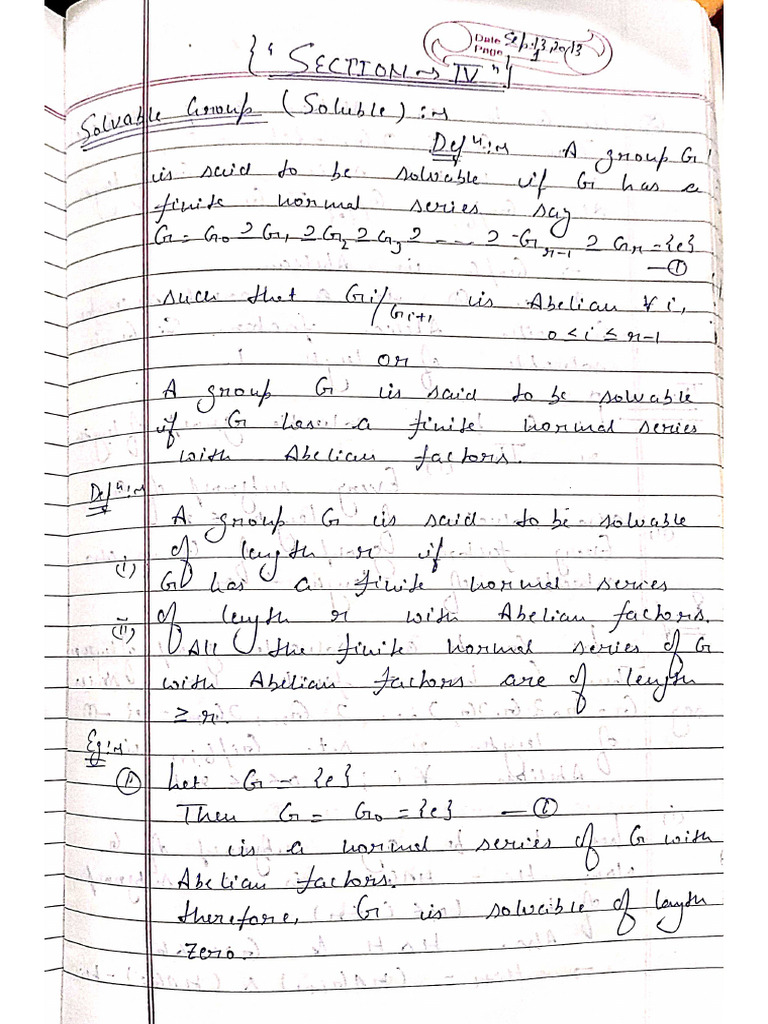 Date Sep. 13, 2013
Page 1
{ " SECTION → IV " }
Solvable Group (Soluble) :→
Defⁿ :→ A group G
is said to be solvable if G has a
finite normal series say
G = G₀ ⊇ G₁ ⊇ G₂ ⊇ G₃ ⊇ ---- ⊇ Gᵣ₋₁ ⊇ Gᵣ = {e}
—①
such that Gᵢ/Gᵢ₊₁ is Abelian ∀ i,
0 ≤ i ≤ r-1
or
A group G is said to be solvable
if G has a finite normal series
with Abelian factors.
Defⁿ :→
A group G is said to be solvable
of length r if
(i) G has a finite normal series
of length r with Abelian factors.
(ii) All the finite normal series of G
with Abelian factors are of length
≥ r.
Eg :→
① Let G = {e}
Then G = G₀ = {e} —①
is a normal series of G with
Abelian factors.
therefore, G is solvable of length
zero.